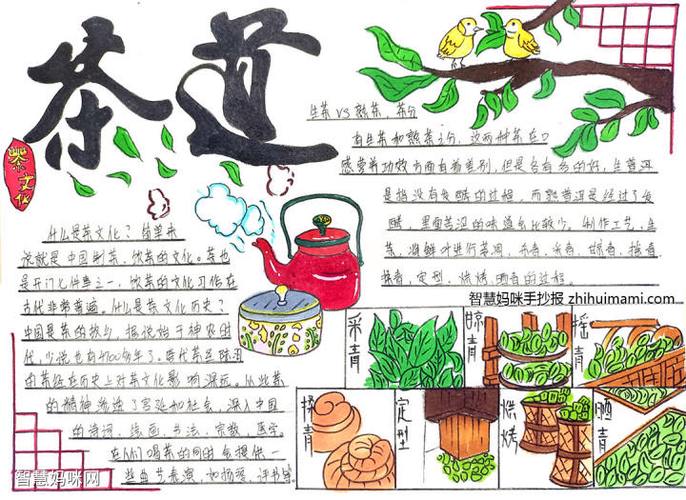 茶道
茶文化
什么是茶文化？简单来
说就是中国制茶、饮茶的文化。茶也
是开门七件事之一，饮茶的文化习俗在
古代非常普遍。什么是茶文化历史？
中国是茶的故乡，据说始于神农时
代，少说也有4700多年了。唐代茶圣陆羽
的茶经在历史上对茶文化影响深远。从此茶
的精神渗透了宫廷和社会，深入中国
的诗词、绘画、书法、宗教、医学。
在人们喝茶的同时会提供一
些曲艺表演，如扬琴、评书等
生茶VS熟茶，茶分
有生茶和熟茶之分，这两种茶在口
感营养功效方面有着差别，但是各有各的好，生普洱
是指没有发酵的过程，而熟普洱是经过了发
酵，里面苦涩的味道会比较少。制作工艺，生
茶，将鲜叶进行
揉青，定型，烘烤，晒青的过程。
智慧妈咪手抄报 zhihuimami.com
采青
晾青
摇青
揉青
定型
烘烤
晒青
智慧妈咪网